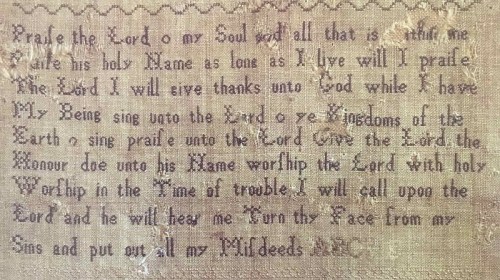 Praiſe the Lord o my Soul and all that is ithin me
Praiſe his holy Name as long as I live will I praiſe
The Lord I will give thanks unto God while I have
My Being sing unto the Lord o ye Kingdoms of the
Earth o sing praiſe unto the Lord Give the Lord the
Honour doe unto his Name worſhip the Lord with holy
Worſhip in the Time of trouble I will call upon the
Lord and he will hear me Turn thy Face from my
Sins and put out all my Miſdeeds ABC